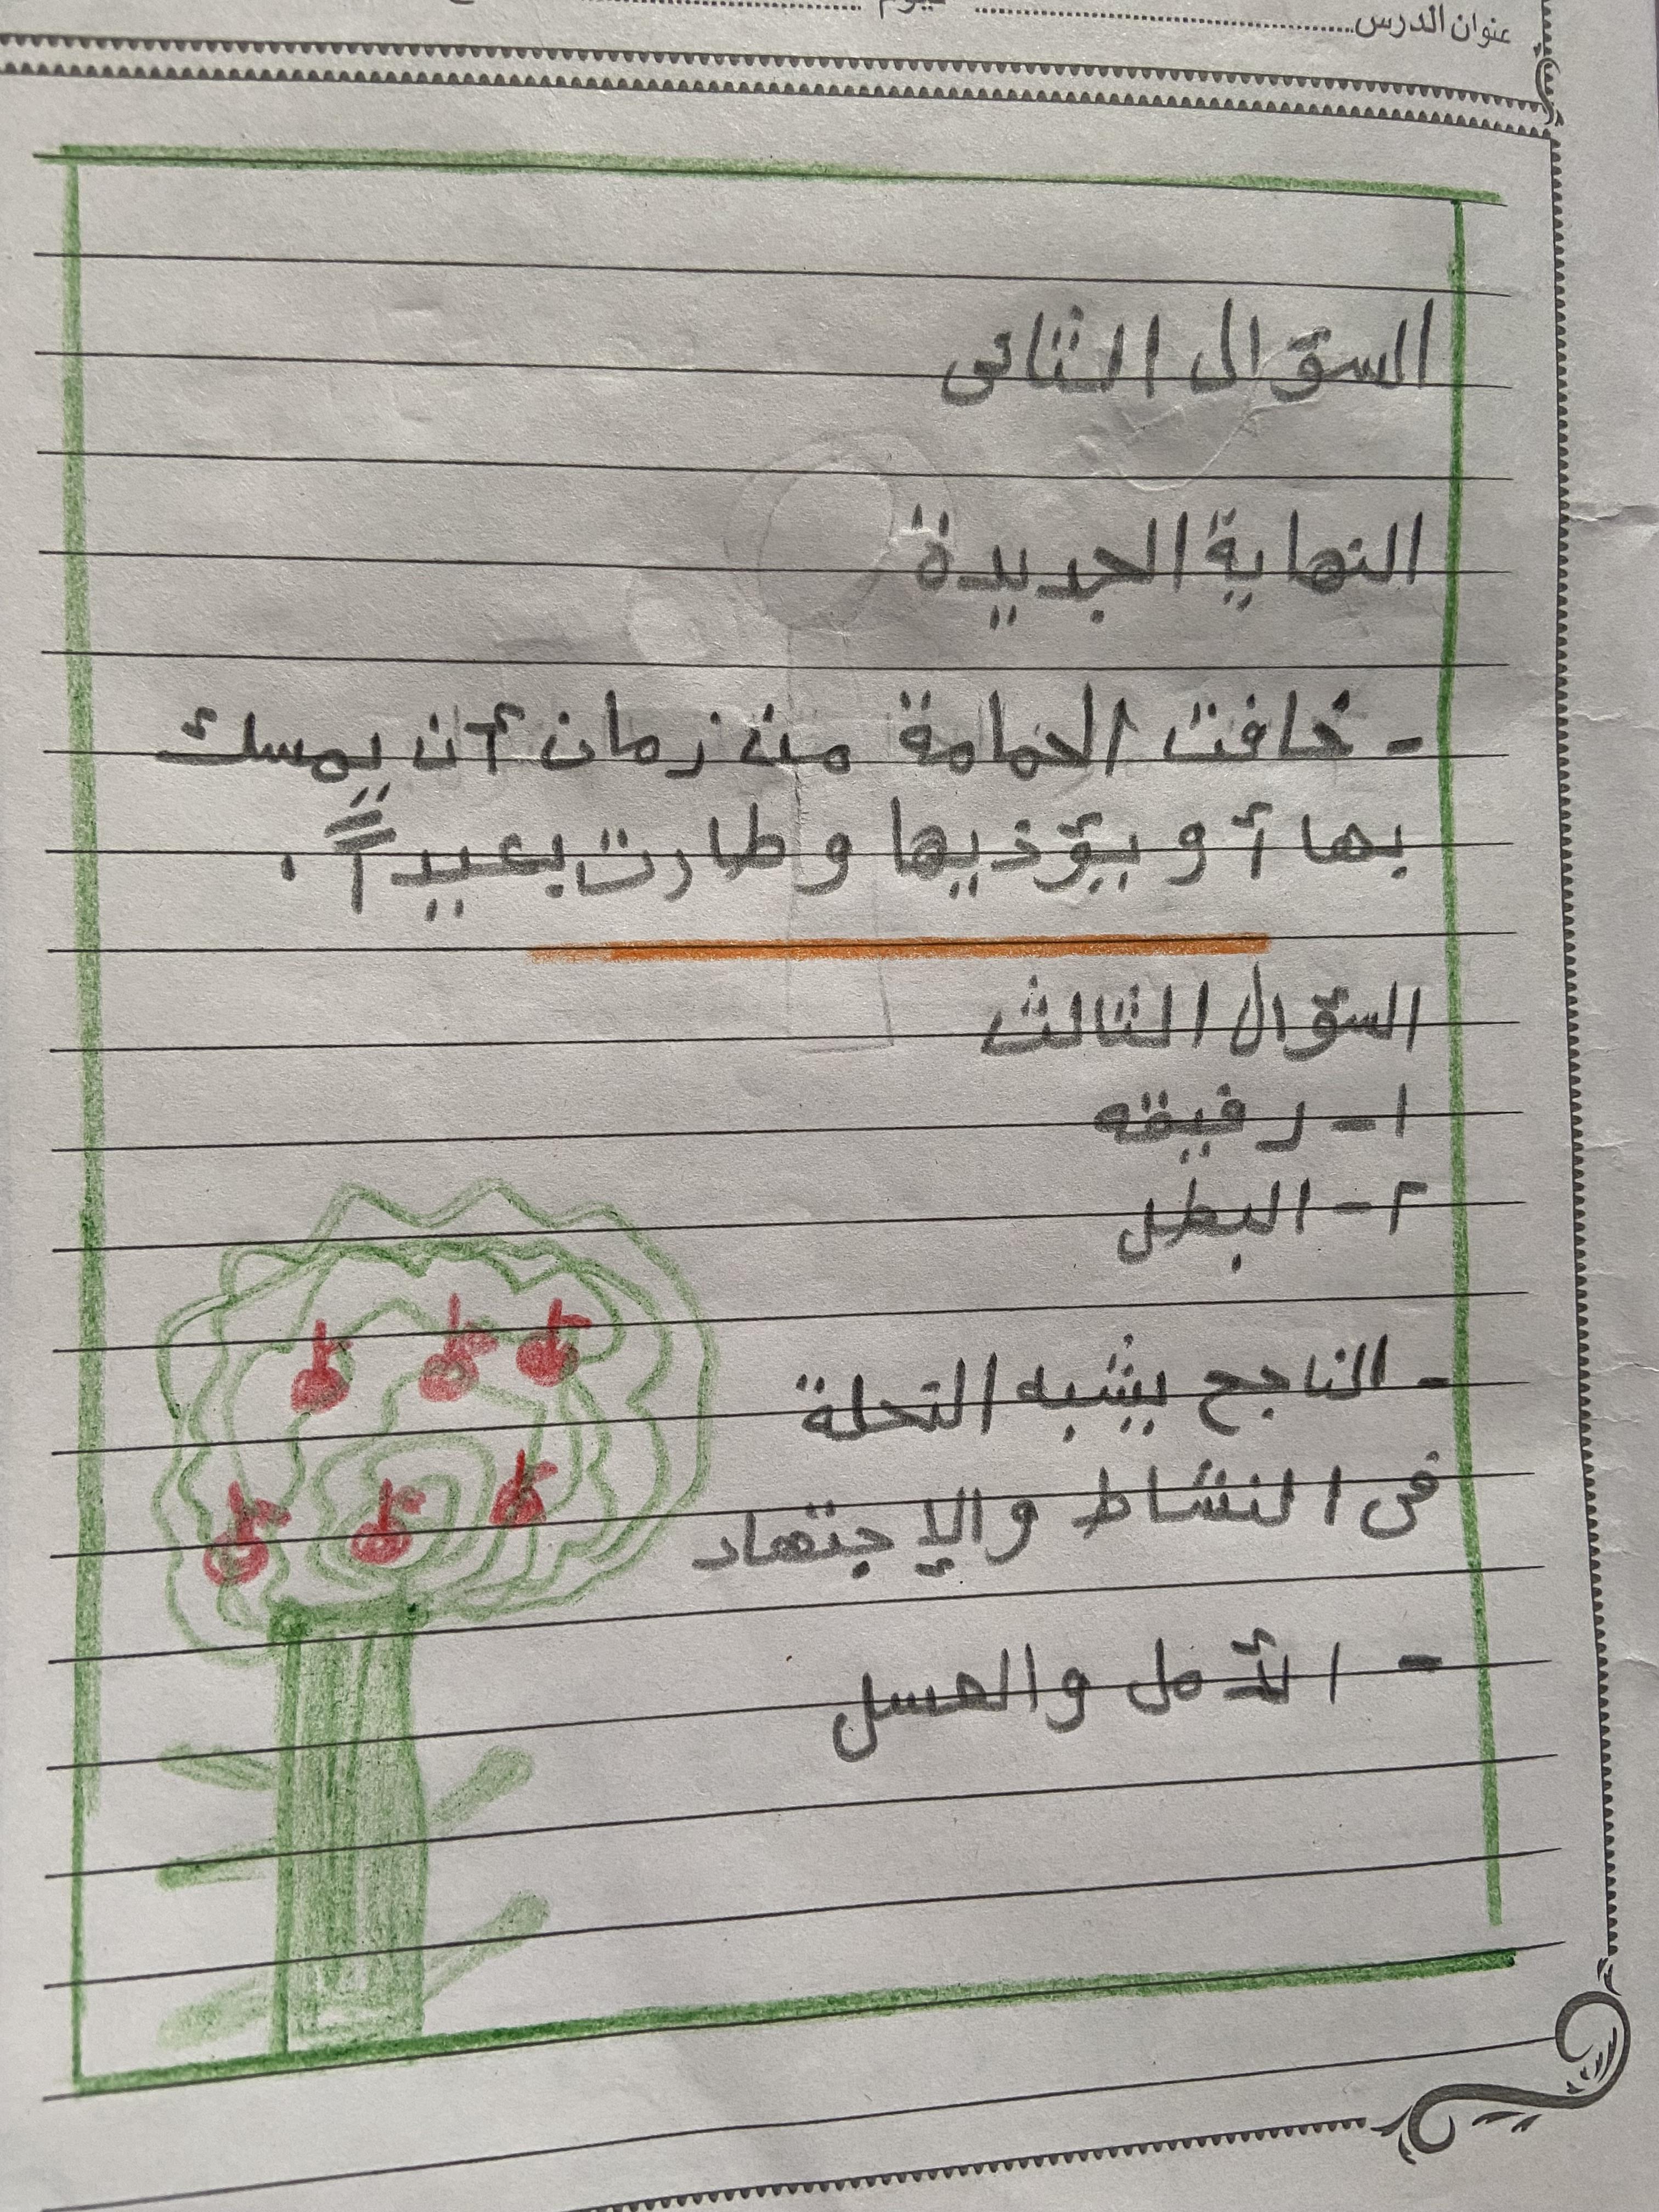 عنوان الدرس
السؤال الثانى
النهاية الجديدة
- خافت الحمامة من زمان أن يمسك
بها أو يؤذيها وطارت بعيداً.
السؤال الثالث
١- رفيقه
٢- البطل
- الناجح يشبه النحلة
فى النشاط والإجتهاد
- الأمل والعسل